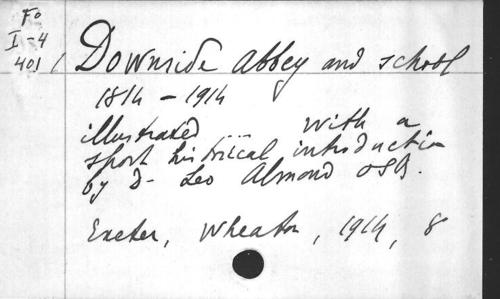 Fo
I-4
401/
Downside abbey and school
1814 - 1914
illustrated ... with a
short historical introduction
by D. Leo Almond OSB.
Exeter, Wheaton, 1914, 8